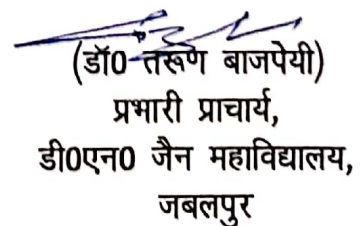 (डॉ0 तरूण बाजपेयी)
प्रभारी प्राचार्य,
डी0एन0 जैन महाविद्यालय,
जबलपुर